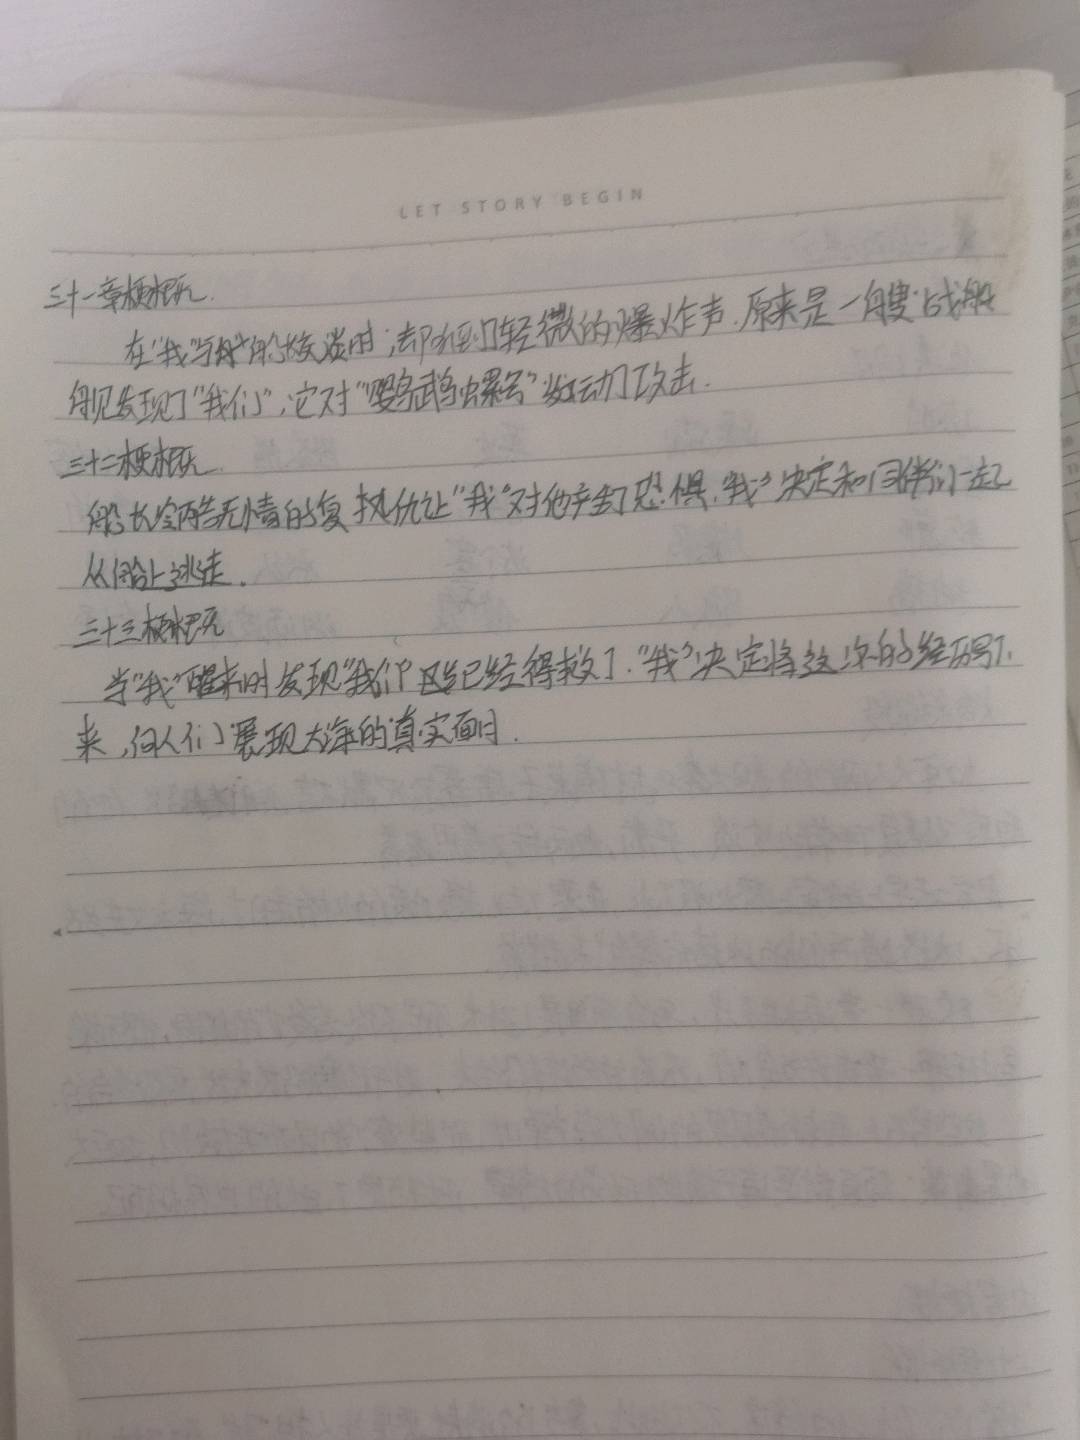 LET STORY BEGIN
三十一章梗概.
在"我"与船长交谈时,却听到了轻微的爆炸声.原来是一艘战船
舰发现了"我们",它对"鹦鹉螺号"发动了攻击.
三十二梗概.
船长冷酷无情的复仇让"我"对他产生了恐惧."我"决定和同伴们一起
从船上逃走.
三十三梗概
当"我"醒来时发现"我们"已经得救了."我"决定将这次的经历写下
来,向人们展现大海的真实面目.